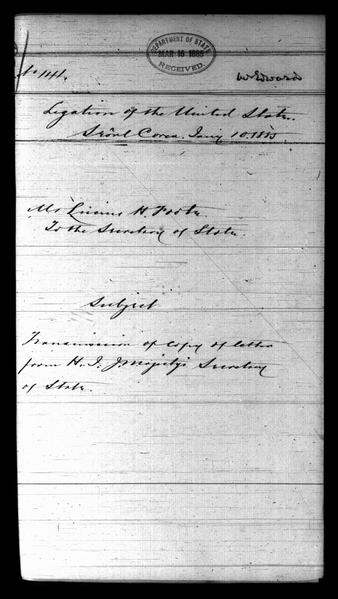 DEPARTMENT OF STATE
MAR 16 1885
RECEIVED.
No 141.
Legation of the United States.
Séoul Corea. Jany 10. 1885.
Mr Lucius H. Foote
To the Secretary of State.
Subject
Transmission of copy of letter
from H. I. J. Majesty's Secretary
of State.